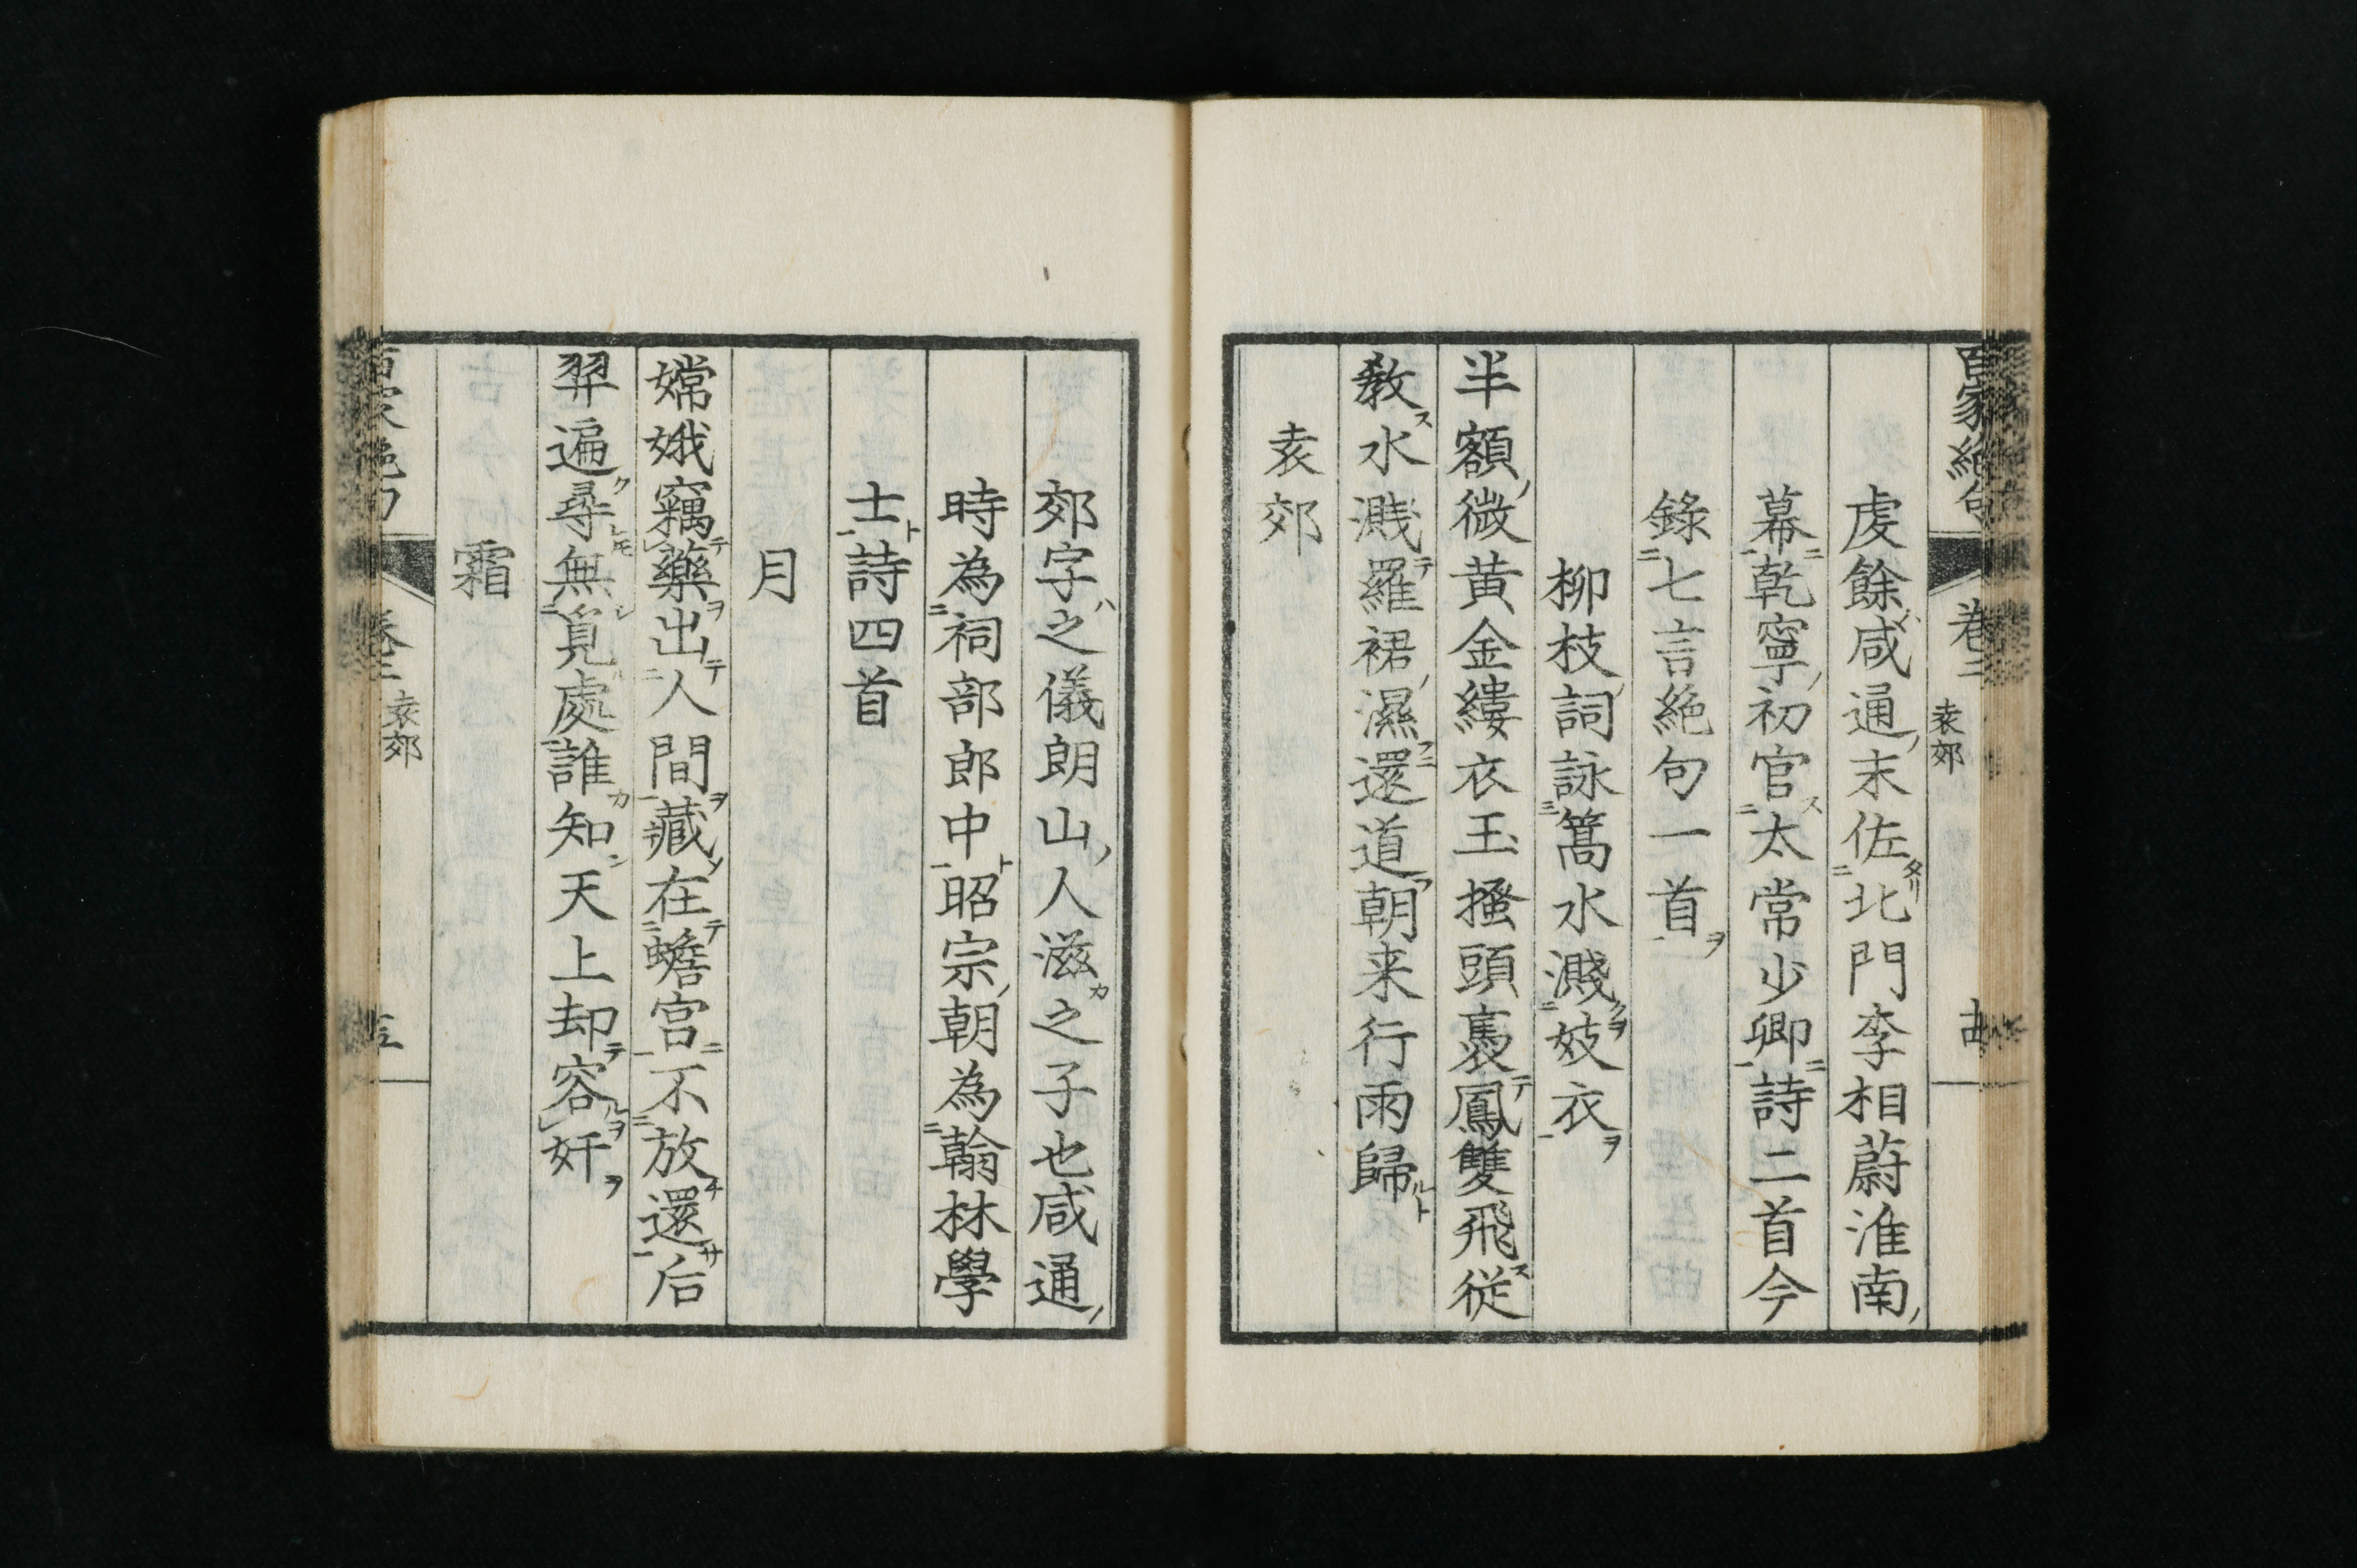 百家絶句
卷二
袁郊
虔餘咸通末佐北門李相蔚淮南
幕乾寧初官太常少卿詩二首今
錄七言絶句一首
柳枝詞詠篙水濺妓衣
半額微黄金縷衣玉搔頭裊鳳雙飛従
教水濺羅裙濕還道朝来行雨歸
袁郊
郊字之儀朗山人滋之子也咸通
時為祠部郎中昭宗朝為翰林學
士詩四首
月
嫦娥竊藥出人間藏在蟾宮不放還后
羿遍尋無覓處誰知天上却容奸
霜
卷二
袁郊